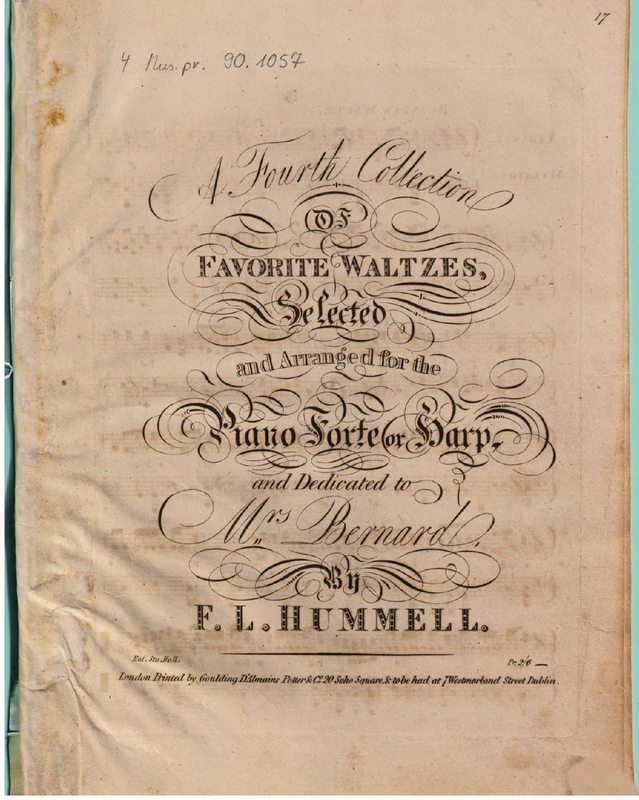 17
4 Mus.pr. 90.1057
A Fourth Collection
OF
FAVORITE WALTZES,
Selected
and Arranged for the
Piano Forte or Harp,
and Dedicated to
Mrs Bernard.
By
F. L. HUMMELL.
Ent. Sta. Hall.
Pr. 2/6
London Printed by Goulding D'Almaine Potter & Co. 20 Soho Square, & to be had at 7 Westmorland Street Dublin.